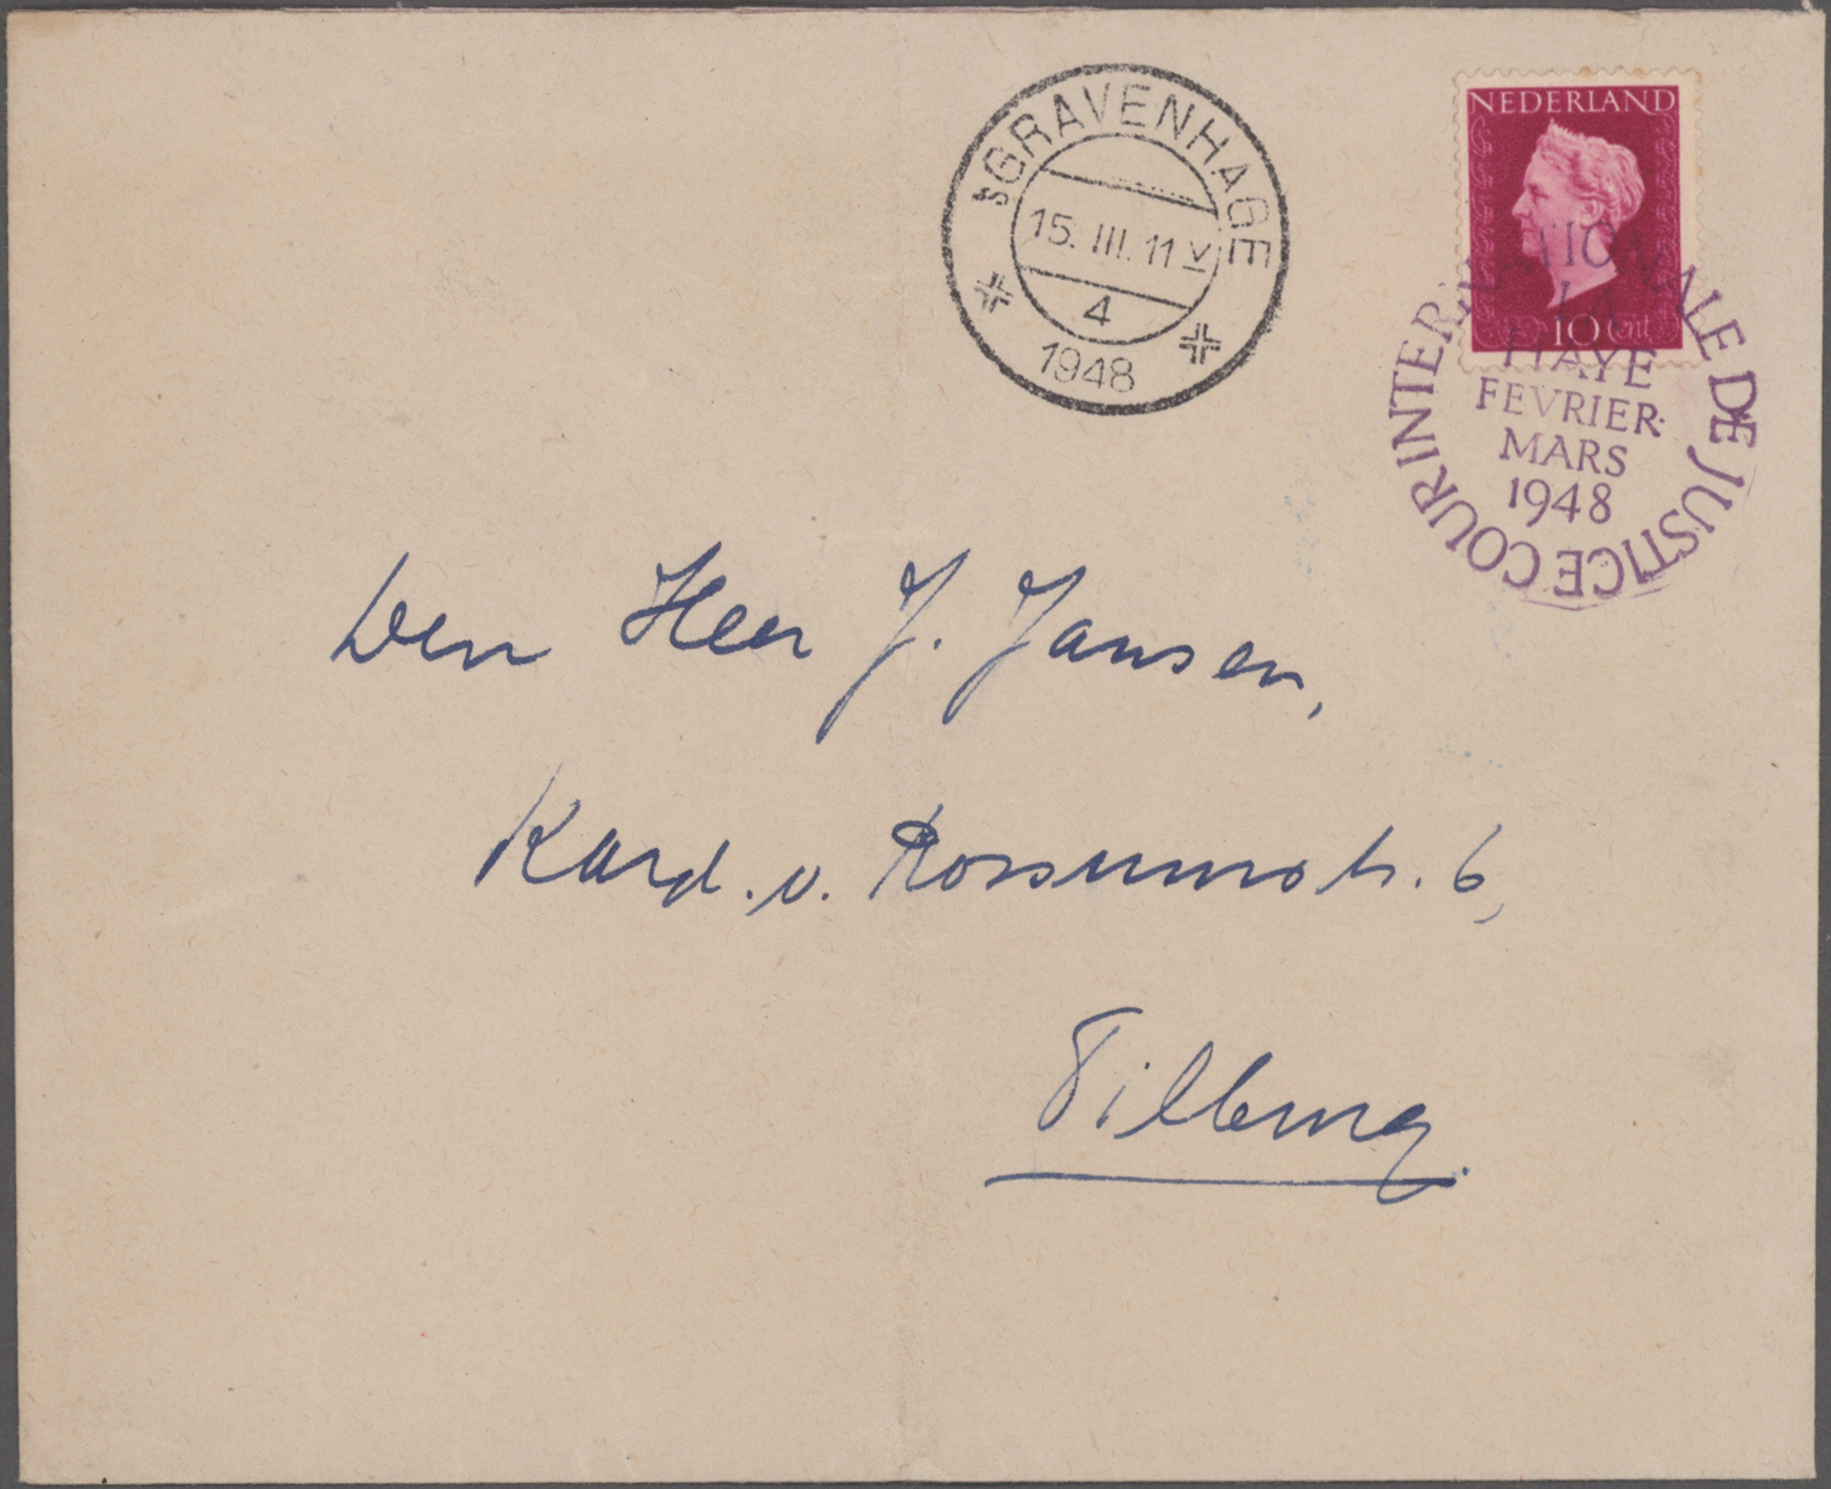 sGRAVENHAGE
15. III. 11 V
4
1948
NEDERLAND
10 Cnt
COUR INTERNATIONALE DE JUSTICE
LA
HAYE
FEVRIER-
MARS
1948
Den Heer J. Jansen,
Kard. v. Rossumstr. 6,
Tilburg.